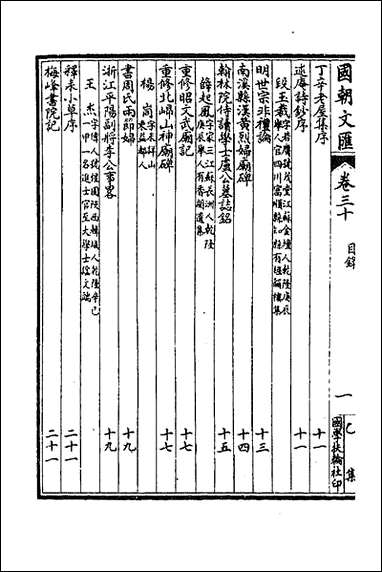 國朝文匯 卷三十 目錄 一 乙集
國學扶輪社印
丁辛老屋集序 十一
述庵詩鈔序 十一
段玉裁 字若膺號茂堂江蘇金壇人乾隆庚辰舉人官四川富順縣知縣有經韻樓集
明世宗非禮論 十三
南溪縣漢黃烈婦廟碑 十四
翰林院侍讀學士盧公墓誌銘 十五
薛起鳳 字家三江蘇長洲人乾隆庚辰舉人有香聞遺集
重修昭文武廟記 十七
重修北㟴山神廟碑 十七
楊崗
書周氏兩節婦 十九
浙江平陽副將李公事畧 十九
王杰 字偉人號惺園陝西韓城人乾隆辛巳一甲一名進士官至大學士諡文端
釋耒小草序 二十一
梅峰書院記 二十一